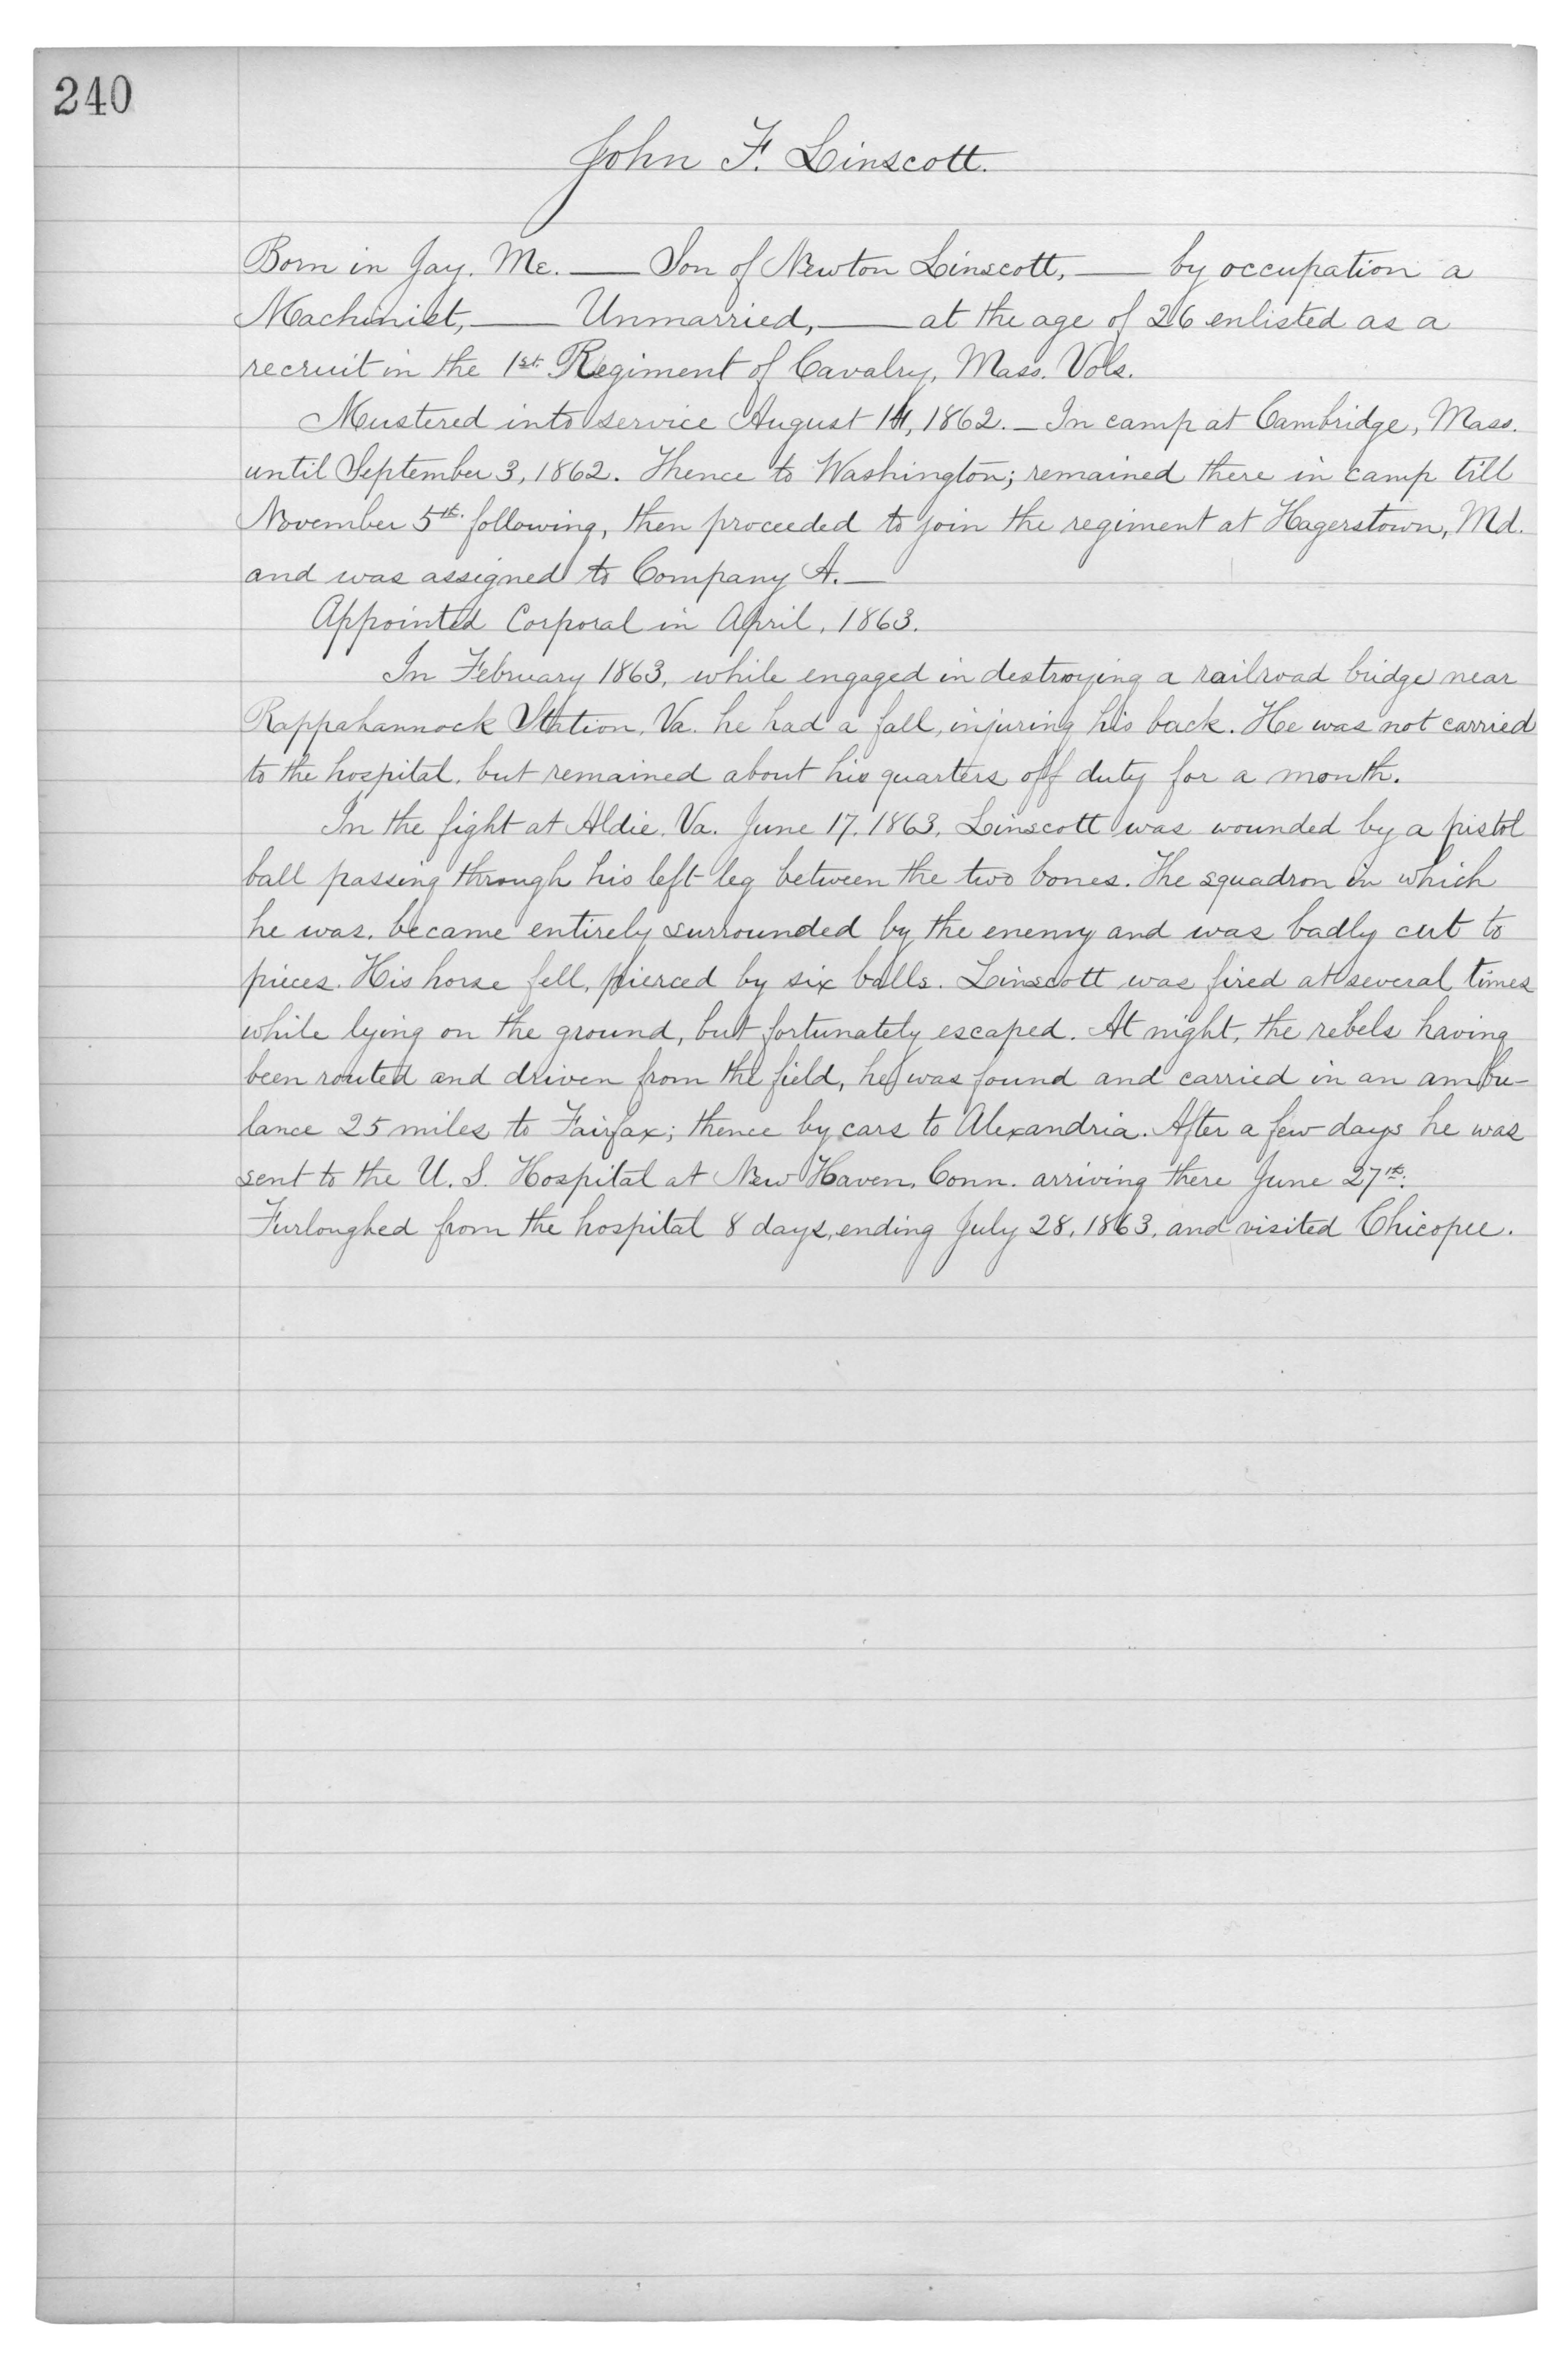 240
John F. Linscott.
Born in Jay, Me. — Son of Newton Linscott, — by occupation a
Machinist, — Unmarried, — at the age of 26 enlisted as a
recruit in the 1st Regiment of Cavalry, Mass. Vols.
Mustered into service August 14, 1862. — In camp at Cambridge, Mass.
until September 3, 1862. Thence to Washington; remained there in camp till
November 5th following, then proceeded to join the regiment at Hagerstown, Md.
and was assigned to Company A. —
Appointed Corporal in April, 1863.
In February 1863, while engaged in destroying a railroad bridge near
Rappahannock Station, Va. he had a fall, injuring his back. He was not carried
to the hospital, but remained about his quarters off duty for a month.
In the fight at Aldie, Va. June 17, 1863, Linscott was wounded by a pistol
ball passing through his left leg between the two bones. The squadron in which
he was, became entirely surrounded by the enemy and was badly cut to
pieces. His horse fell, pierced by six balls. Linscott was fired at several times
while lying on the ground, but fortunately escaped. At night, the rebels having
been routed and driven from the field, he was found and carried in an ambu-
lance 25 miles to Fairfax; thence by cars to Alexandria. After a few days he was
sent to the U. S. Hospital at New Haven, Conn. arriving there June 27th.
Furloughed from the hospital 8 days, ending July 28, 1863, and visited Chicopee.